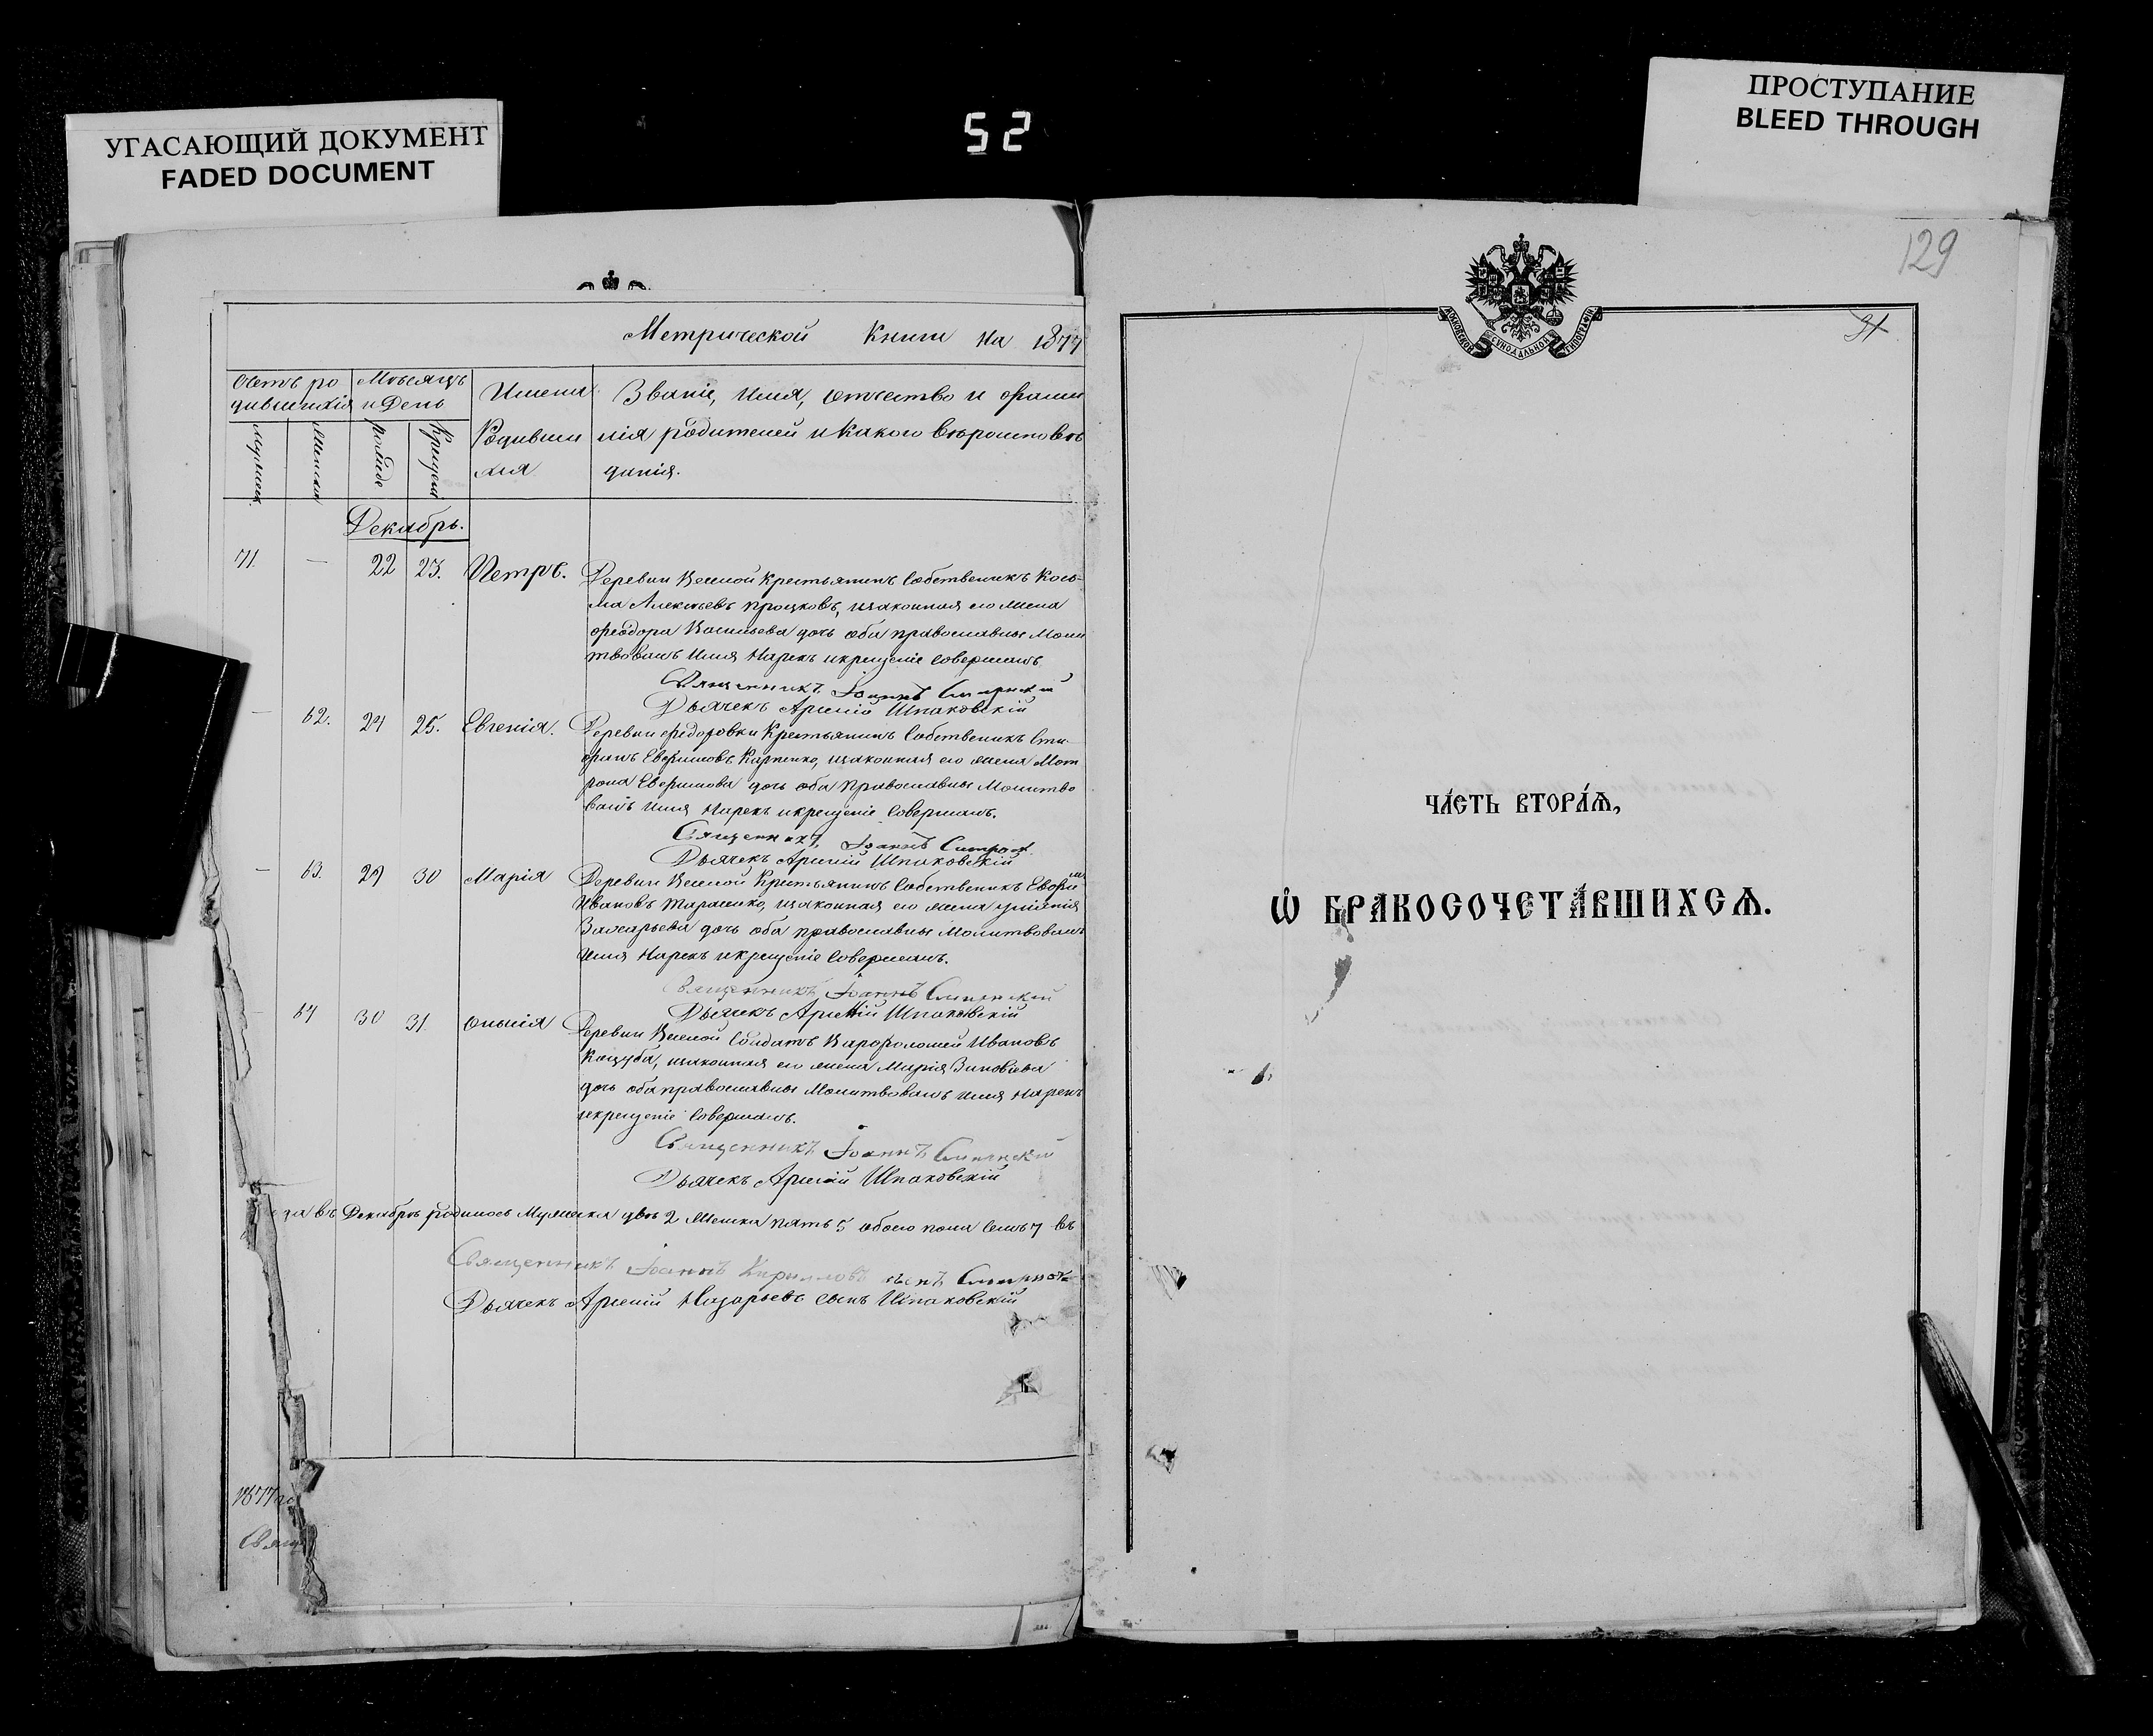 УГАСАЮЩИЙ ДОКУМЕНТ
FADED DOCUMENT
52
ПРОСТУПАНИЕ
BLEED THROUGH
129
Метрической Книги на 1877
Счетъ ро
дившихся
Мѣсяцъ
и День
Имена
Родивши
хся
Званіе, имя, отчество и фами
лія родителей и какого вѣроисповѣ
данія.
Декабрь.
71. — 22 23. Петръ.
Деревни Веселой Крестьянинъ Собственникъ Кось-
ма Алексѣевъ Процковъ, изаконная его жена
Ѳеодора Васильева дочь оба православные Моли
твовалъ Имя Нарекъ икрещеніе Совершалъ
Священникъ Іоаннъ
Дьячекъ Арсеній Шпаковскій
— 62. 24 25. Евгенія.
Деревни Федоровки Крестьянинъ Собственникъ Сте-
фанъ Евфимовъ Карпенко, изаконная его жена Мат
рона Евфимова дочь оба Православные Молитво
валъ Имя Нарекъ икрещеніе Совершалъ.
Священникъ Іоаннъ
Дьячекъ Арсеній Шпаковскій
— 63. 29 30 Марія
Деревни Веселой Крестьянинъ Собственникъ Евфи
Ивановъ Тараненко, изаконная его жена
Захарьева дочь оба православные Молитвовалъ
Имя Нарекъ икрещеніе Совершалъ.
Священникъ Іоаннъ
Дьячекъ Арсеній Шпаковскій
64 30 31.
Деревни Веселой Солдатъ Варфоломей Ивановъ
Кацуба, изаконная его жена Марія Зиновіева
дочь оба православные Молитвовалъ имя нарекъ
икрещеніе Совершалъ.
Священникъ Іоаннъ
Дьячекъ Арсеній Шпаковскій
въ Декабрѣ родилось Мужеска два 2 Женска пять 5 обоего пола Семь 7
Священникъ Іоаннъ Кирилловъ сынъ
Дьячекъ Арсеній Назарьевъ сынъ Шпаковскій
1877
МОСКОВСКОЙ СѴНОДАЛЬНОЙ ТИПОГРАФІИ
ЧА́СТЬ ВТОРА́Ѧ,
Ѽ БРАКОСОЧЕТА́ВШИХСѦ.